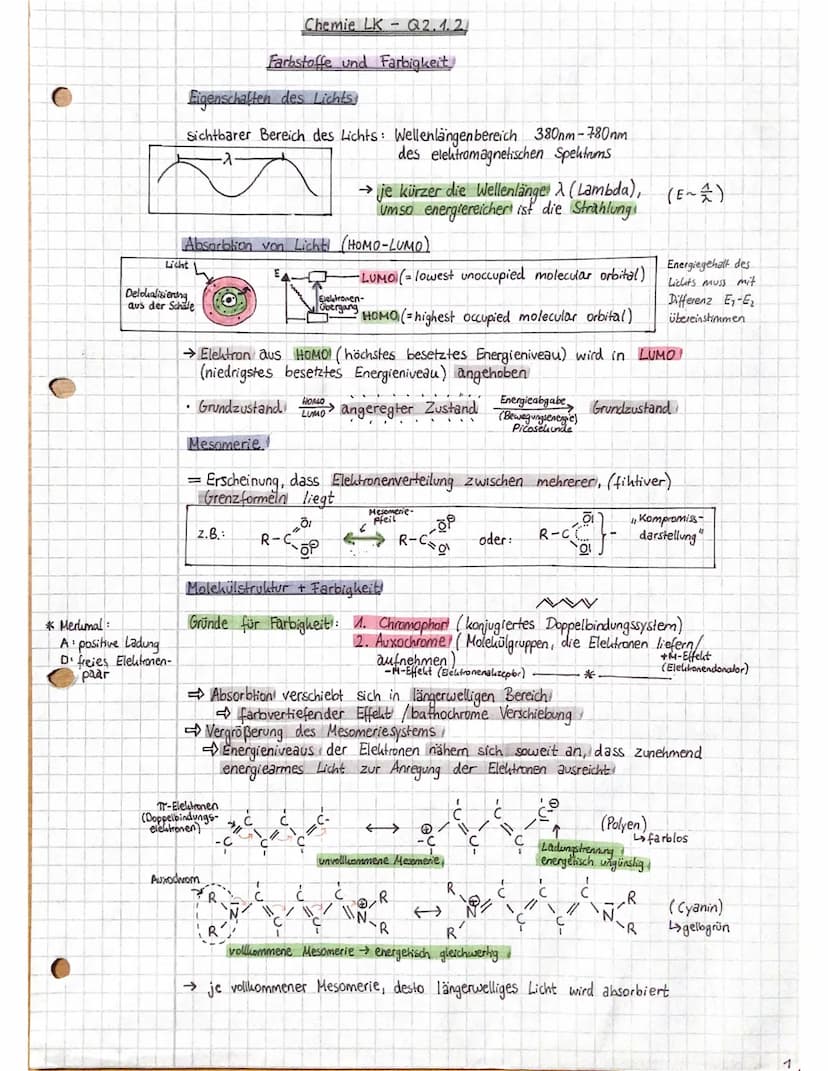 Chemie LK - Q2.1.2
Farbstoffe und Farbigkeit
Eigenschaften des Lichts
sichtbarer Bereich des Lichts: Wellenlängenbereich 380nm-780nm
des elektromagnetischen Spektrums
λ
→ je kürzer die Wellenlänge λ (Lambda), (E ~ 1/λ)
umso energiereicher ist die Strahlung
Absorbtion von Licht (HOMO-LUMO)
Licht
Delokalisierung
aus der Schale
E
Elektronen-
übergang
LUMO (= lowest unoccupied molecular orbital)
HOMO (= highest occupied molecular orbital)
Energiegehalt des
Lichts muss mit
Differenz E₁-E₂
übereinstimmen
→ Elektron aus HOMO (höchstes besetztes Energieniveau) wird in LUMO
(niedrigstes besetztes Energieniveau) angehoben
· Grundzustand HOMO LUMO → angeregter Zustand Energieabgabe (Bewegungsenergie) Picosekunde → Grundzustand
Mesomerie
= Erscheinung, dass Elektronenverteilung zwischen mehrerer, (fiktiver)
Grenzformeln liegt
z.B.: R-C O O⊖ Mesomerie-
pfeil R-C O⊖ O oder: R-C O O - "Kompromiss-
darstellung"
Molekülstruktur + Farbigkeit
Gründe für Farbigkeit: 1. Chromophor (konjugiertes Doppelbindungssystem)
2. Auxochrome (Molekülgruppen, die Elektronen liefern/
aufnehmen)
+M-Effekt
(Elektronendonator)
-M-Effekt (Elektronenakzeptor) — * —
* Merkmal:
A: positive Ladung
D: freies Elektronen-
paar
⇒ Absorbtion verschiebt sich in längerwelligen Bereich
⇒ farbvertiefender Effekt / bathochrome Verschiebung
⇒ Vergrößerung des Mesomeriesystems
⇒ Energieniveaus der Elektronen nähern sich soweit an, dass zunehmend
energiearmes Licht zur Anregung der Elektronen ausreicht
π-Elektronen
(Doppelbindungs-
elektronen)
-C C C C C C- ↔ ⊕ -C C C C C C⊖
(Polyen)
↳ farblos
unvollkommene Mesomerie
Ladungstrennung
energetisch ungünstig
Auxochrom
R R N C C C C C N⊕ R R ↔ R R N⊕ C C C C C N R R
(Cyanin)
↳ gelbgrün
vollkommene Mesomerie → energetisch gleichwertig
→ je vollkommener Mesomerie, desto längerwelliges Licht wird absorbiert
1